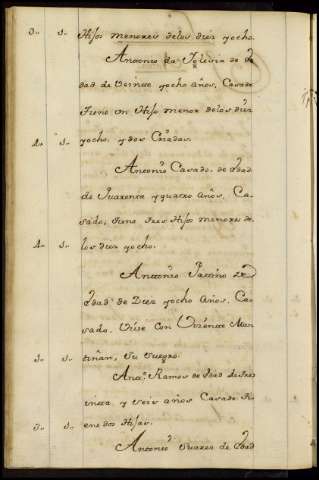 3.. 3.. Hijos menores de los diez yocho.
Antonio da Iglesia de e
dad de Veinte yocho años, Casado
tiene un Hijo menor de los diez
4.. 3.. yocho, y dos Criadas.
Antonio Casado, de edad
de Quarenta y quatro años, Ca-
sado, tiene tres Hijos menores de
4.. 3.. los diez yocho.
Antonio Patiño de
edad de Diez yocho años, Ca-
sado. Vive con Vizente Man
3.. 3.. tiñan, su suegro.
Anto. Ramos de edad de tre
inta y seis años Casado ti
3.. 3.. ene dos Hijos.
Antonio Suarez de edad